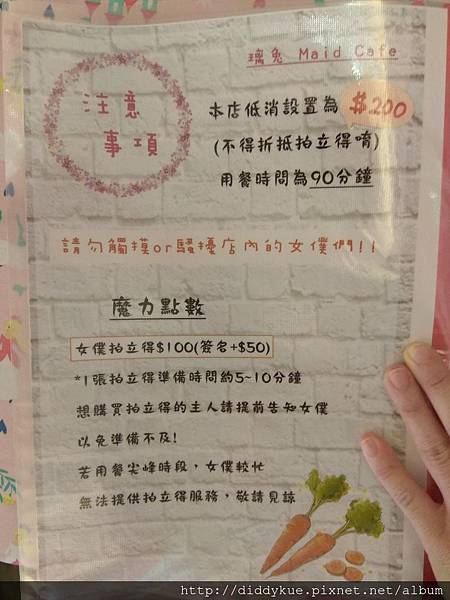 璃兔 Maid Cafe
注意
事項
本店低消設置為 $200
(不得折抵拍立得唷)
用餐時間為90分鐘
請勿觸摸or騷擾店內的女僕們!!
魔力點數
女僕拍立得$100(簽名+$50)
*1張拍立得準備時間約5~10分鐘
想購買拍立得的主人請提前告知女僕
以免準備不及!
若用餐尖峰時段，女僕較忙
無法提供拍立得服務，敬請見諒
http://diddykue.pixnet.net/album